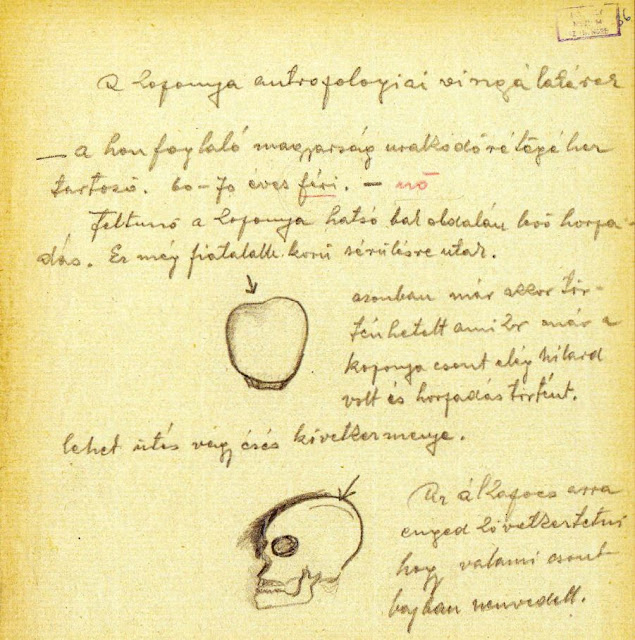 A koponya antropologiai vizsgálatának
— a honfoglaló magyarság uralkodórétegéhez
tartozó. 60–70 éves férfi. — nő
Feltünő a koponya hatsó bal oldalán levő horpa-
dás. Ez még fiatalabb korú sérülésre utal.
azonban már akkor tör-
ténhetett amikor már a
koponya csont elég szilárd
volt és horpadás történt.
lehet ütés vagy esés következménye.
Az álkapocs arra
enged következtetni
hogy valami csont
bajban szenvedett.